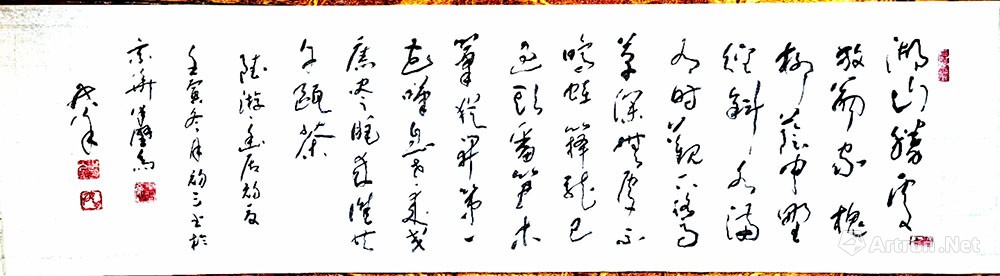 湖山勝處
放翁家槐
柳蔭中野
徑斜水滿
有時觀下鷺
草深無處不
鳴蛙籜龍已
過頭番筍木
筆猶開第一
花嘆息老來交
舊盡睡來誰共
午甌茶
陸游幽居初夏
壬寅冬月初三書於
京華
Artron.Net